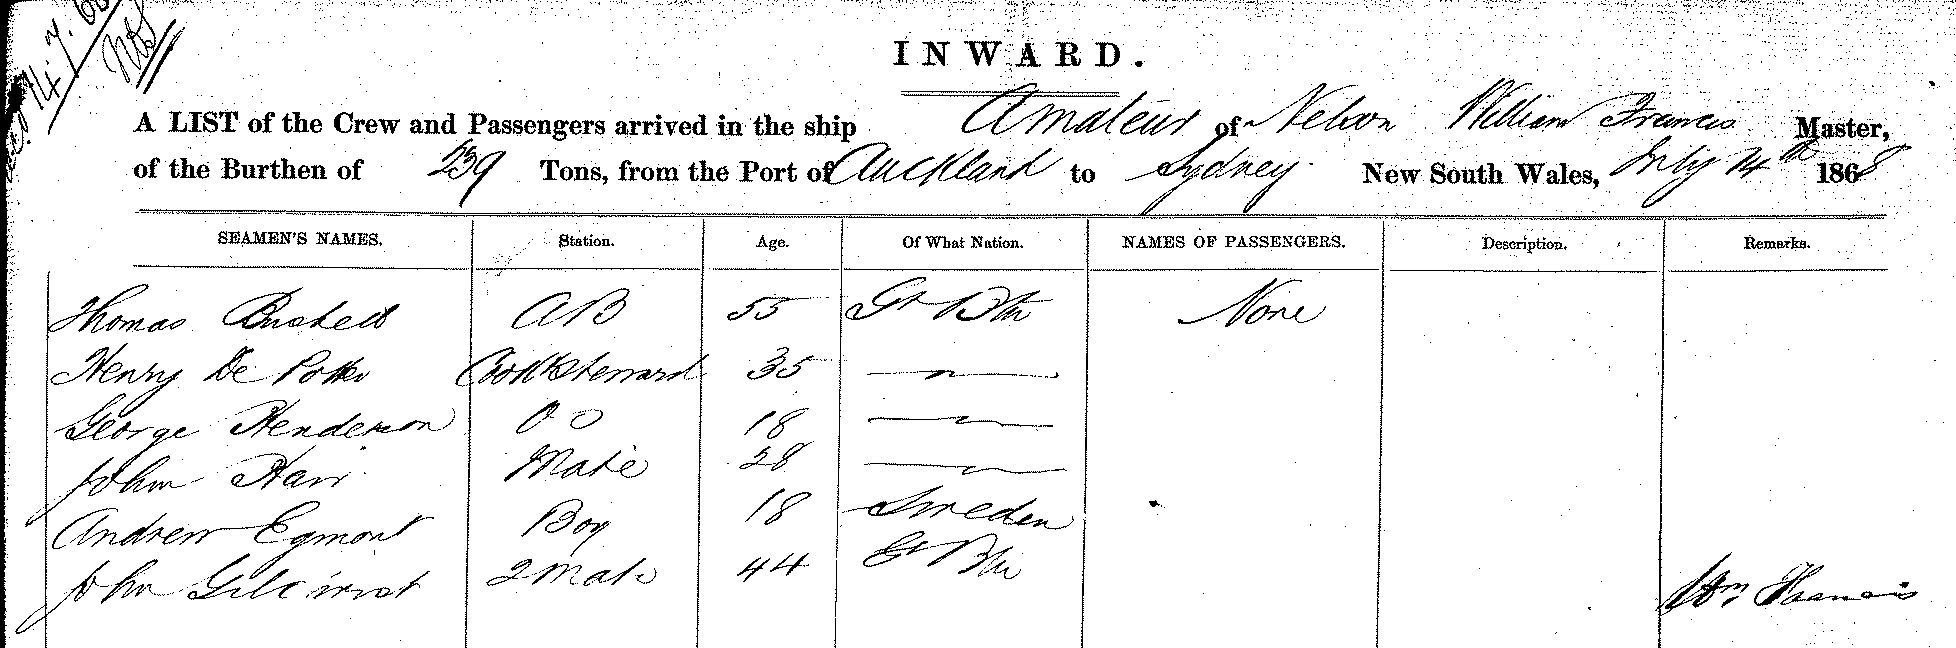 14.7.68
INWARD.
A LIST of the Crew and Passengers arrived in the ship Amateur of Nelson William Francis Master,
of the Burthen of 239 Tons, from the Port of Auckland to Sydney New South Wales, July 14th 1868
SEAMEN'S NAMES. Station. Age. Of What Nation. NAMES OF PASSENGERS. Description. Remarks.
Thomas Bushell AB 55 Gt Btn None
Henry De Potter Cook & Steward 35 — " —
George Henderson OS 18 — " —
John Hair Mate 28 — " —
Andrew Egmont Boy 18 Sweden
John Gilcirist 2 Mate 44 Gt Btn
Wm Francis